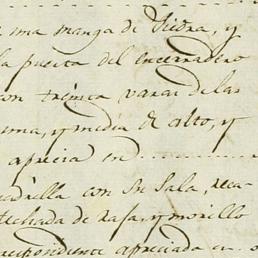 una manga de Piedra, y
la puerta del encerradero
con treinta varas de las
una, y media de alto, y
aprecia en
quadrilla con su sala, reca
techada de raja, y morillo
correspondiente apreciada en